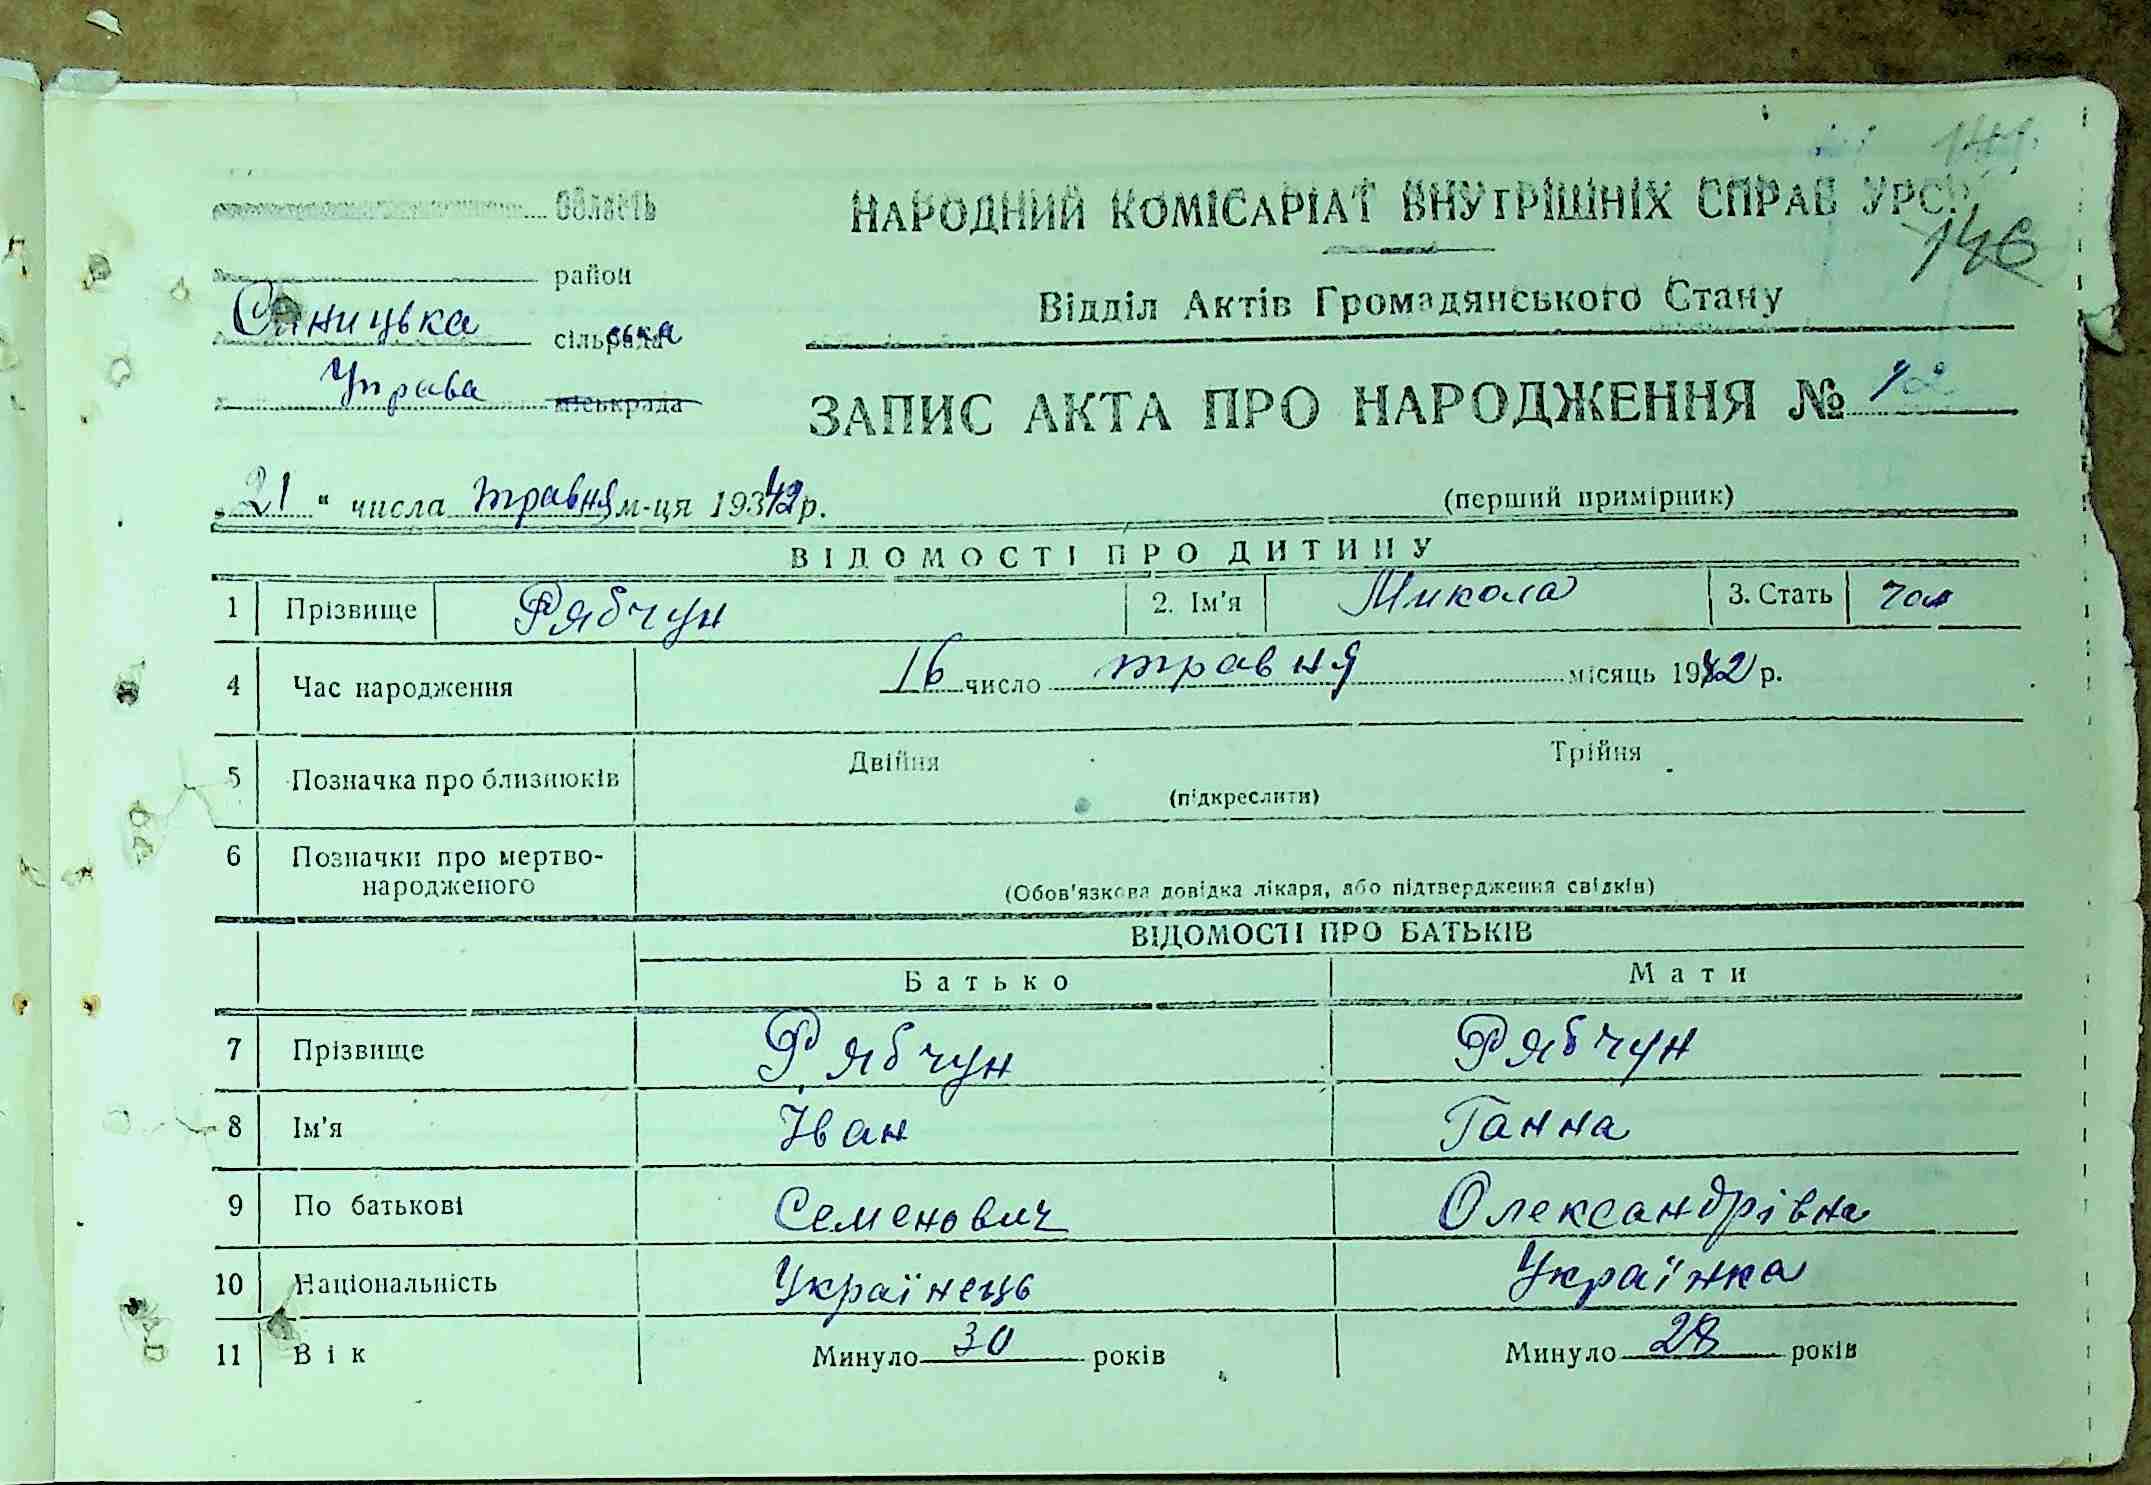 область
НАРОДНИЙ КОМІСАРІАТ ВНУТРІШНІХ СПРАВ УРСР
146
район
Відділ Актів Громадянського Стану
Синицька сільська
Управа міськрада
ЗАПИС АКТА ПРО НАРОДЖЕННЯ № 12
„21“ числа травня м-ця 1942 р.
(перший примірник)
ВІДОМОСТІ ПРО ДИТИНУ
1 Прізвище Рябчун 2. Ім'я Микола 3. Стать чол
4 Час народження 16 число травня місяць 1942 р.
5 Позначка про близнюків Двійня Трійня
(підкреслити)
6 Позначки про мертво-
народженого
(Обов'язкова довідка лікаря, або підтвердження свідків)
ВІДОМОСТІ ПРО БАТЬКІВ
Батько Мати
7 Прізвище Рябчун Рябчун
8 Ім'я Іван Ганна
9 По батькові Семенович Олександрівна
10 Національність Українець Українка
11 Вік Минуло 30 років Минуло 28 років